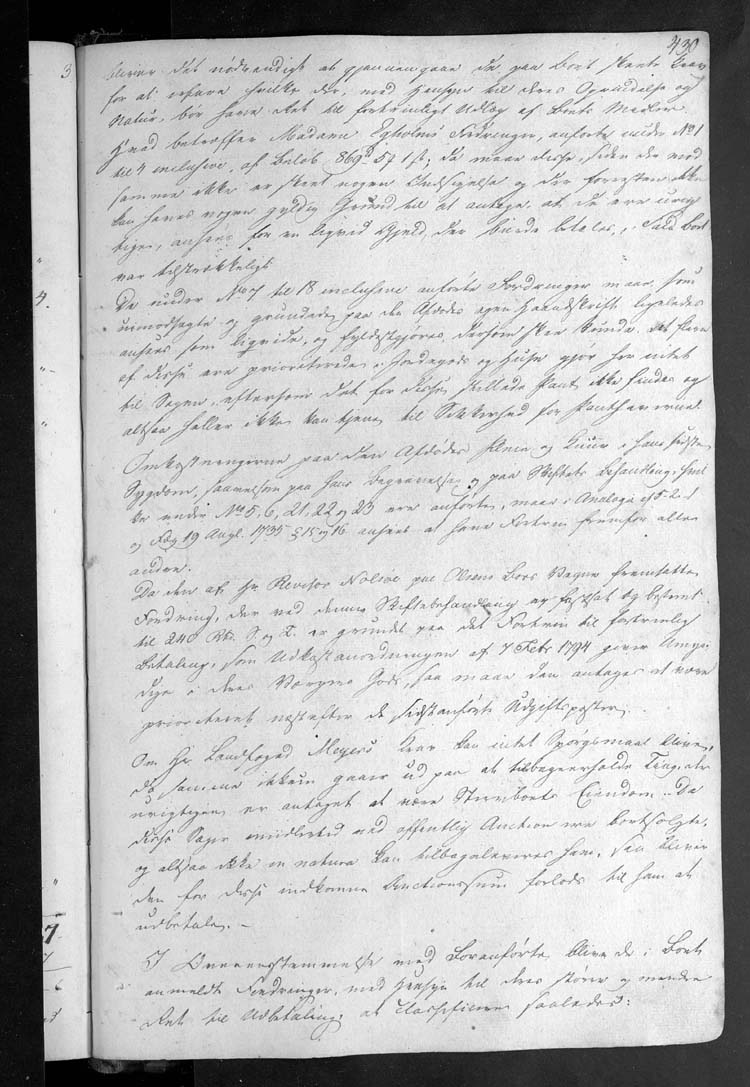 430
bliver det nødvendigt at gjennemgaae de paa Boet skeete Krav
for at erfare hvilke der, med Hensyn til deres Oprindelse og
Natur, bør have Ret til fortrinligt Udlæg af Boets Masse.
Hvad betræffer Madame Egholms Fordringer, anførte under No 1
til 4 inclusive, af Beløb 869 rd 57 1/2 s; da maae disse, siden der mod
samme ikke er skeet nogen Indsigelse og der forresten ikke
kan haves nogen gyldig Grund til at antage, at de ere urig-
tige, ansees for en liqvid Gjeld, der burde betales, i Fald Boet
var tilstrækkeligt.
De under No 7 til 18 inclusive anførte Fordringer maae, som
uimodsagte og grundede paa den Afdødes egen Haandskrift ligeledes
ansees som liqvide, og fyldestgjøres, dersom skee kunde. At flere
af disse ere prioriterede i Jordegods og Huse gjør her intet
til Sagen, eftersom det for disse stillede Pant ikke findes og
altsaa heller ikke kan tjene til Sikkerhed for Panthaverne.
Omkostningerne paa den Afdødes Pleie og Kuur i hans sidste
Sygdom, saavelsom paa hans Begravelse og paa Skiftets Behandling, hvil-
ke under No 5, 6, 21, 22 og 23 ere anførte, maae i Analogie af 5-2-
og Fdg 19 Augl. 1735 § 15 og 16 ansees at have Fortrin fremfor alle
andre.
Da den af Hr Revisor Nolsøe paa Vegne fremsatte
Fordring, der ved denne Skiftebehandling er fastsat og bestemt
til 240 Rbd. S. og T. er grundet paa det Fortrin til fortrinlig
Betaling, som Udkastanordningen af 7 Febr 1794 giver Umyn-
dige i deres Værges Gods, saa maae den antages at være
prioriteret næst efter de sidstanførte Udgiftsposter.
Om Hr Landfoged Meyers Krav kan intet Spørgsmaal blive,
da samme ikkun gaaer ud paa at tilbageerholde Ting, der
urigtigen er antaget at være Stervboets Eiendom. Da
disse Sager imidlertid ved offentlig Auction ere bortsolgte,
og altsaa ikke in natura kan tilbageleveres ham, saa bliver
den for disse indkomne Auctionssum forlods til ham at
udbetale. -
I Overensstemmelse med Foranførte blive de i Boet
anmeldte Fordringer, med Hensyn til deres større og mindre
Ret til Udbetaling, at classificere saaledes: